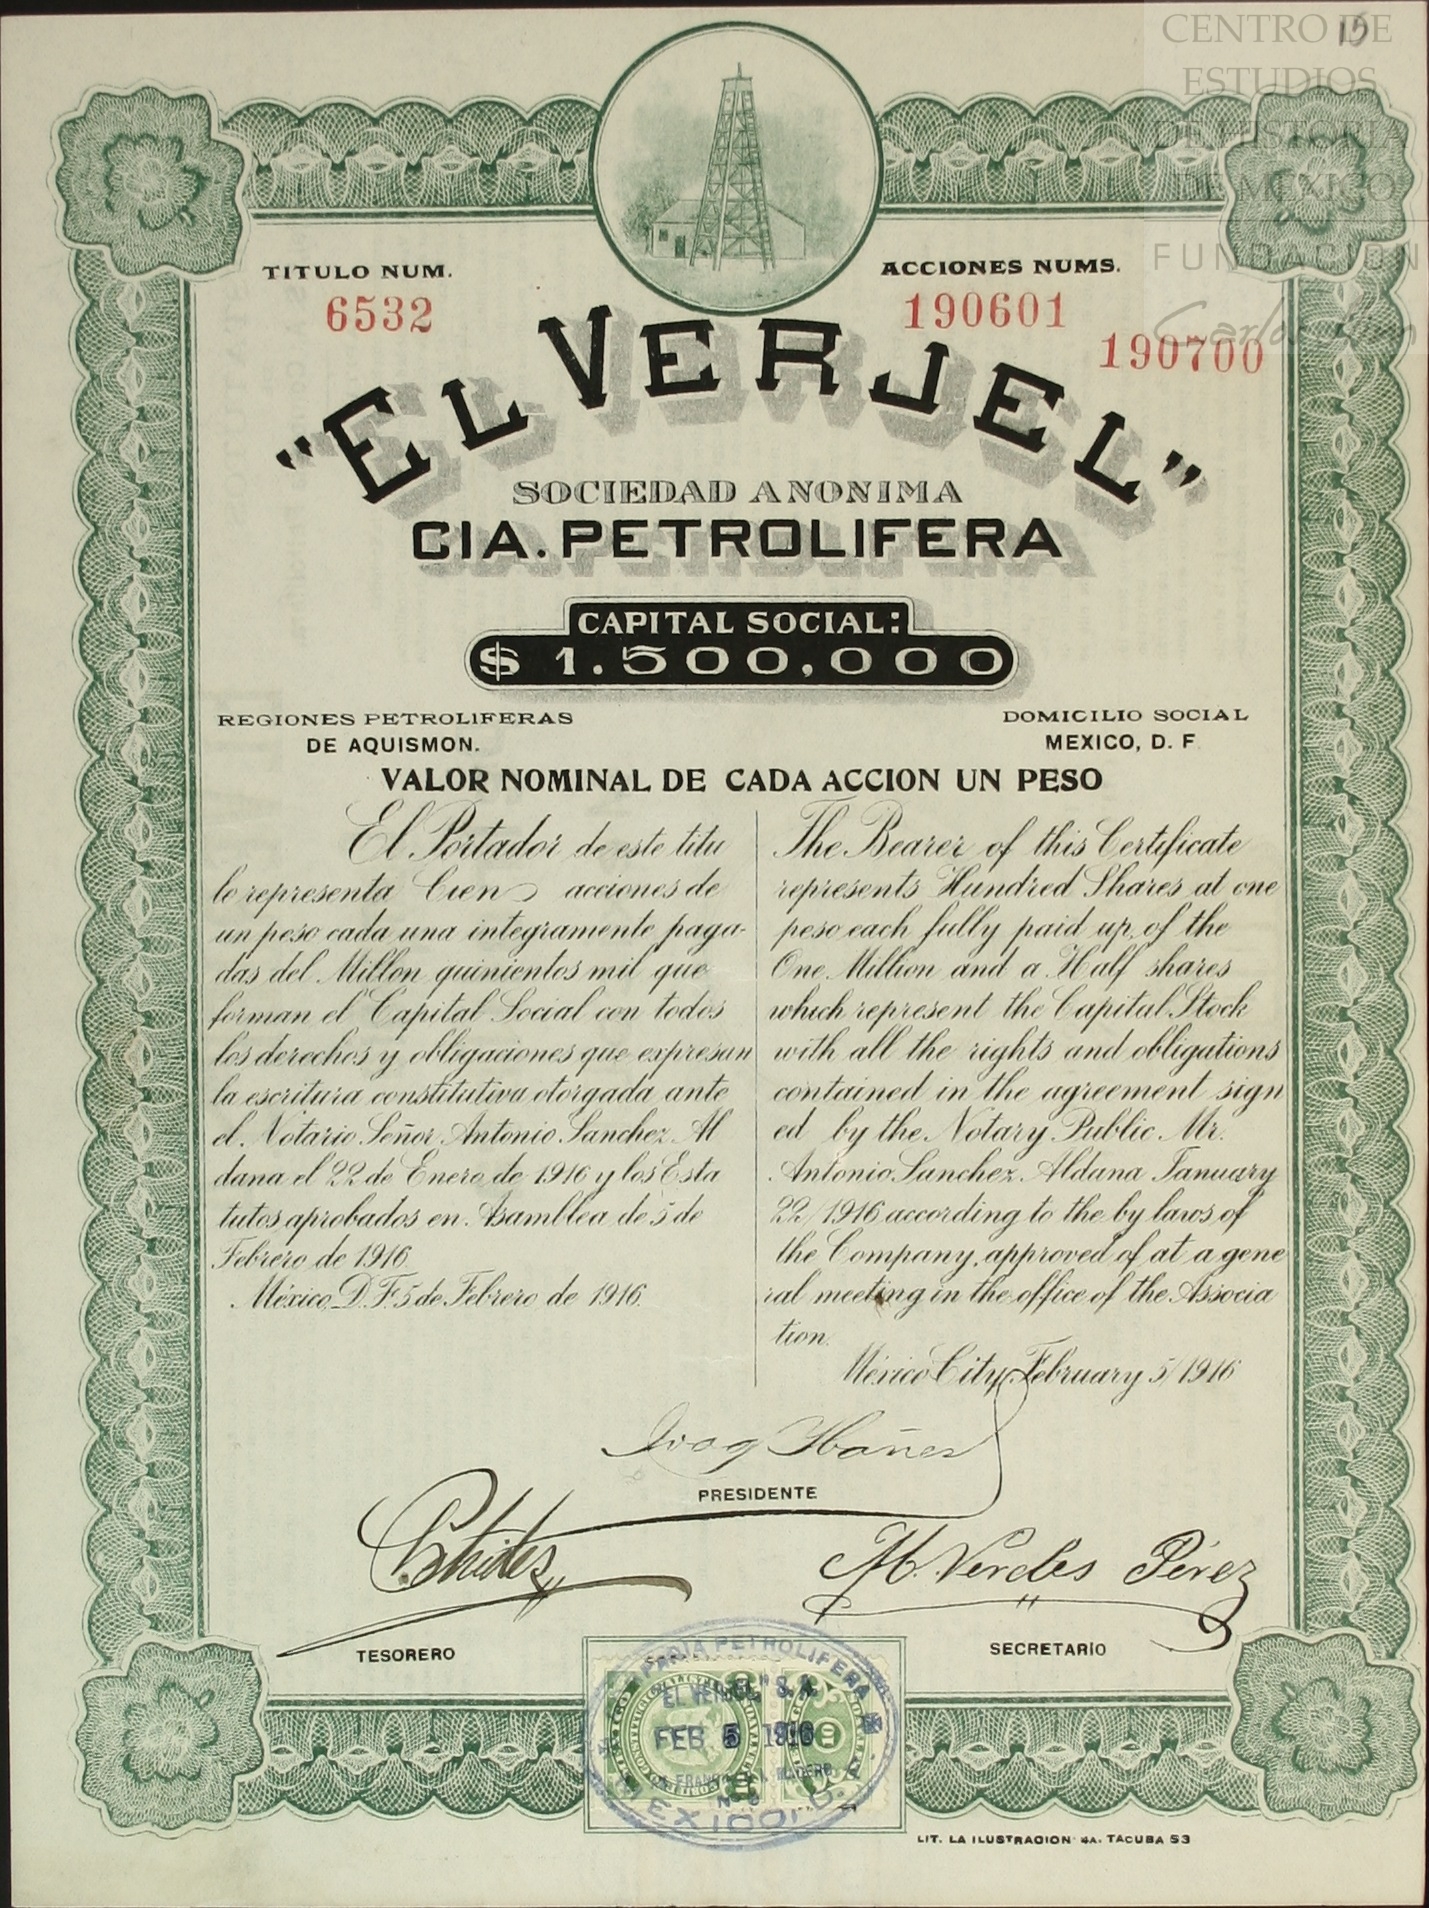 CENTRO DE
ESTUDIOS
DE HISTORIA
DE MEXICO
FUNDACION
Carlos Slim
15
TITULO NUM.
6532
ACCIONES NUMS.
190601
190700
"EL VERJEL"
SOCIEDAD ANONIMA
CIA. PETROLIFERA
CAPITAL SOCIAL:
$ 1.500,000
REGIONES PETROLIFERAS
DE AQUISMON.
DOMICILIO SOCIAL
MEXICO, D. F.
VALOR NOMINAL DE CADA ACCION UN PESO
El Portador de este titu
lo representa Cien acciones de
un peso cada una integramente paga-
das del Millon quinientos mil que
forman el Capital Social con todos
los derechos y obligaciones que expresan
la escritura constitutiva otorgada ante
el Notario Señor Antonio Sanchez Al
dana el 22 de Enero de 1916 y los Esta
tutos aprobados en Asamblea de 5 de
Febrero de 1916.
México D. F. 5 de Febrero de 1916.
The Bearer of this Certificate
represents Hundred Shares at one
peso each fully paid up of the
One Million and a Half shares
which represent the Capital Stock
with all the rights and obligations
contained in the agreement sign
ed by the Notary Public Mr.
Antonio Sanchez Aldana January
22/1916 according to the by laws of
the Company, approved of at a gene
ral meeting in the office of the Associa
tion.
México City February 5/1916
Joaq Ibañez
PRESIDENTE
M. Verdes Pérez
TESORERO
SECRETARIO
PAÑIA PETROLIFERA
"EL VERJEL" S. A.
FEB 5 1916
MEXICO, D. F.
LIT. LA ILUSTRACION 4A. TACUBA 53